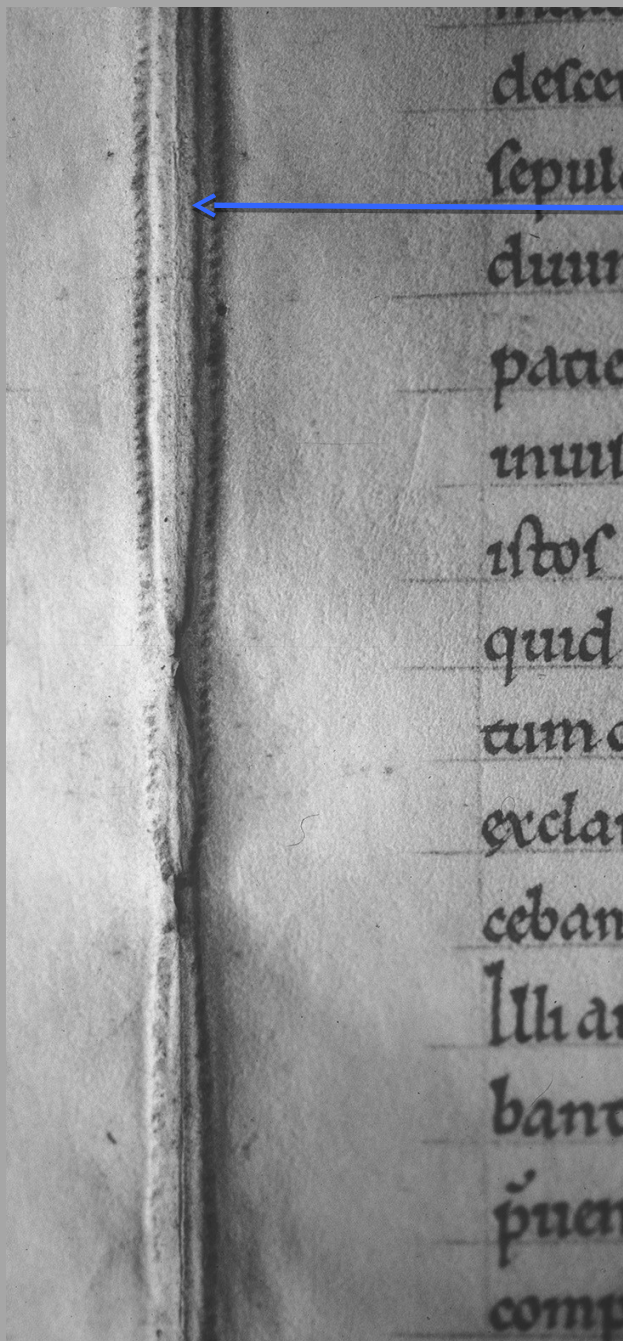 deſce
ſepul
duur
patie
inuiſ
iſtoſ
quid
tum c
exclar
ceban
Illi ar
bant
p̄uen
comp